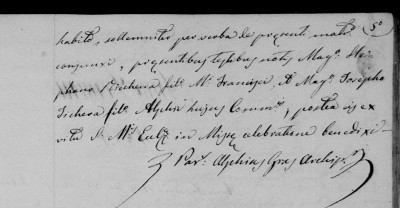 50
habito, sollemniter per verba de præsenti mat.o
conjunxi, præsentibus testibus notis Mag.o Ste
phano Trichera fil.o M.i Francisci, et Mag.o Josepho
Trichera fil.o Alphii hujus Comm.s, postea iis ex
ritu S. M. Eccl.æ in Missæ celebratione benedixi
Par.s Alphius Gras Archip.r